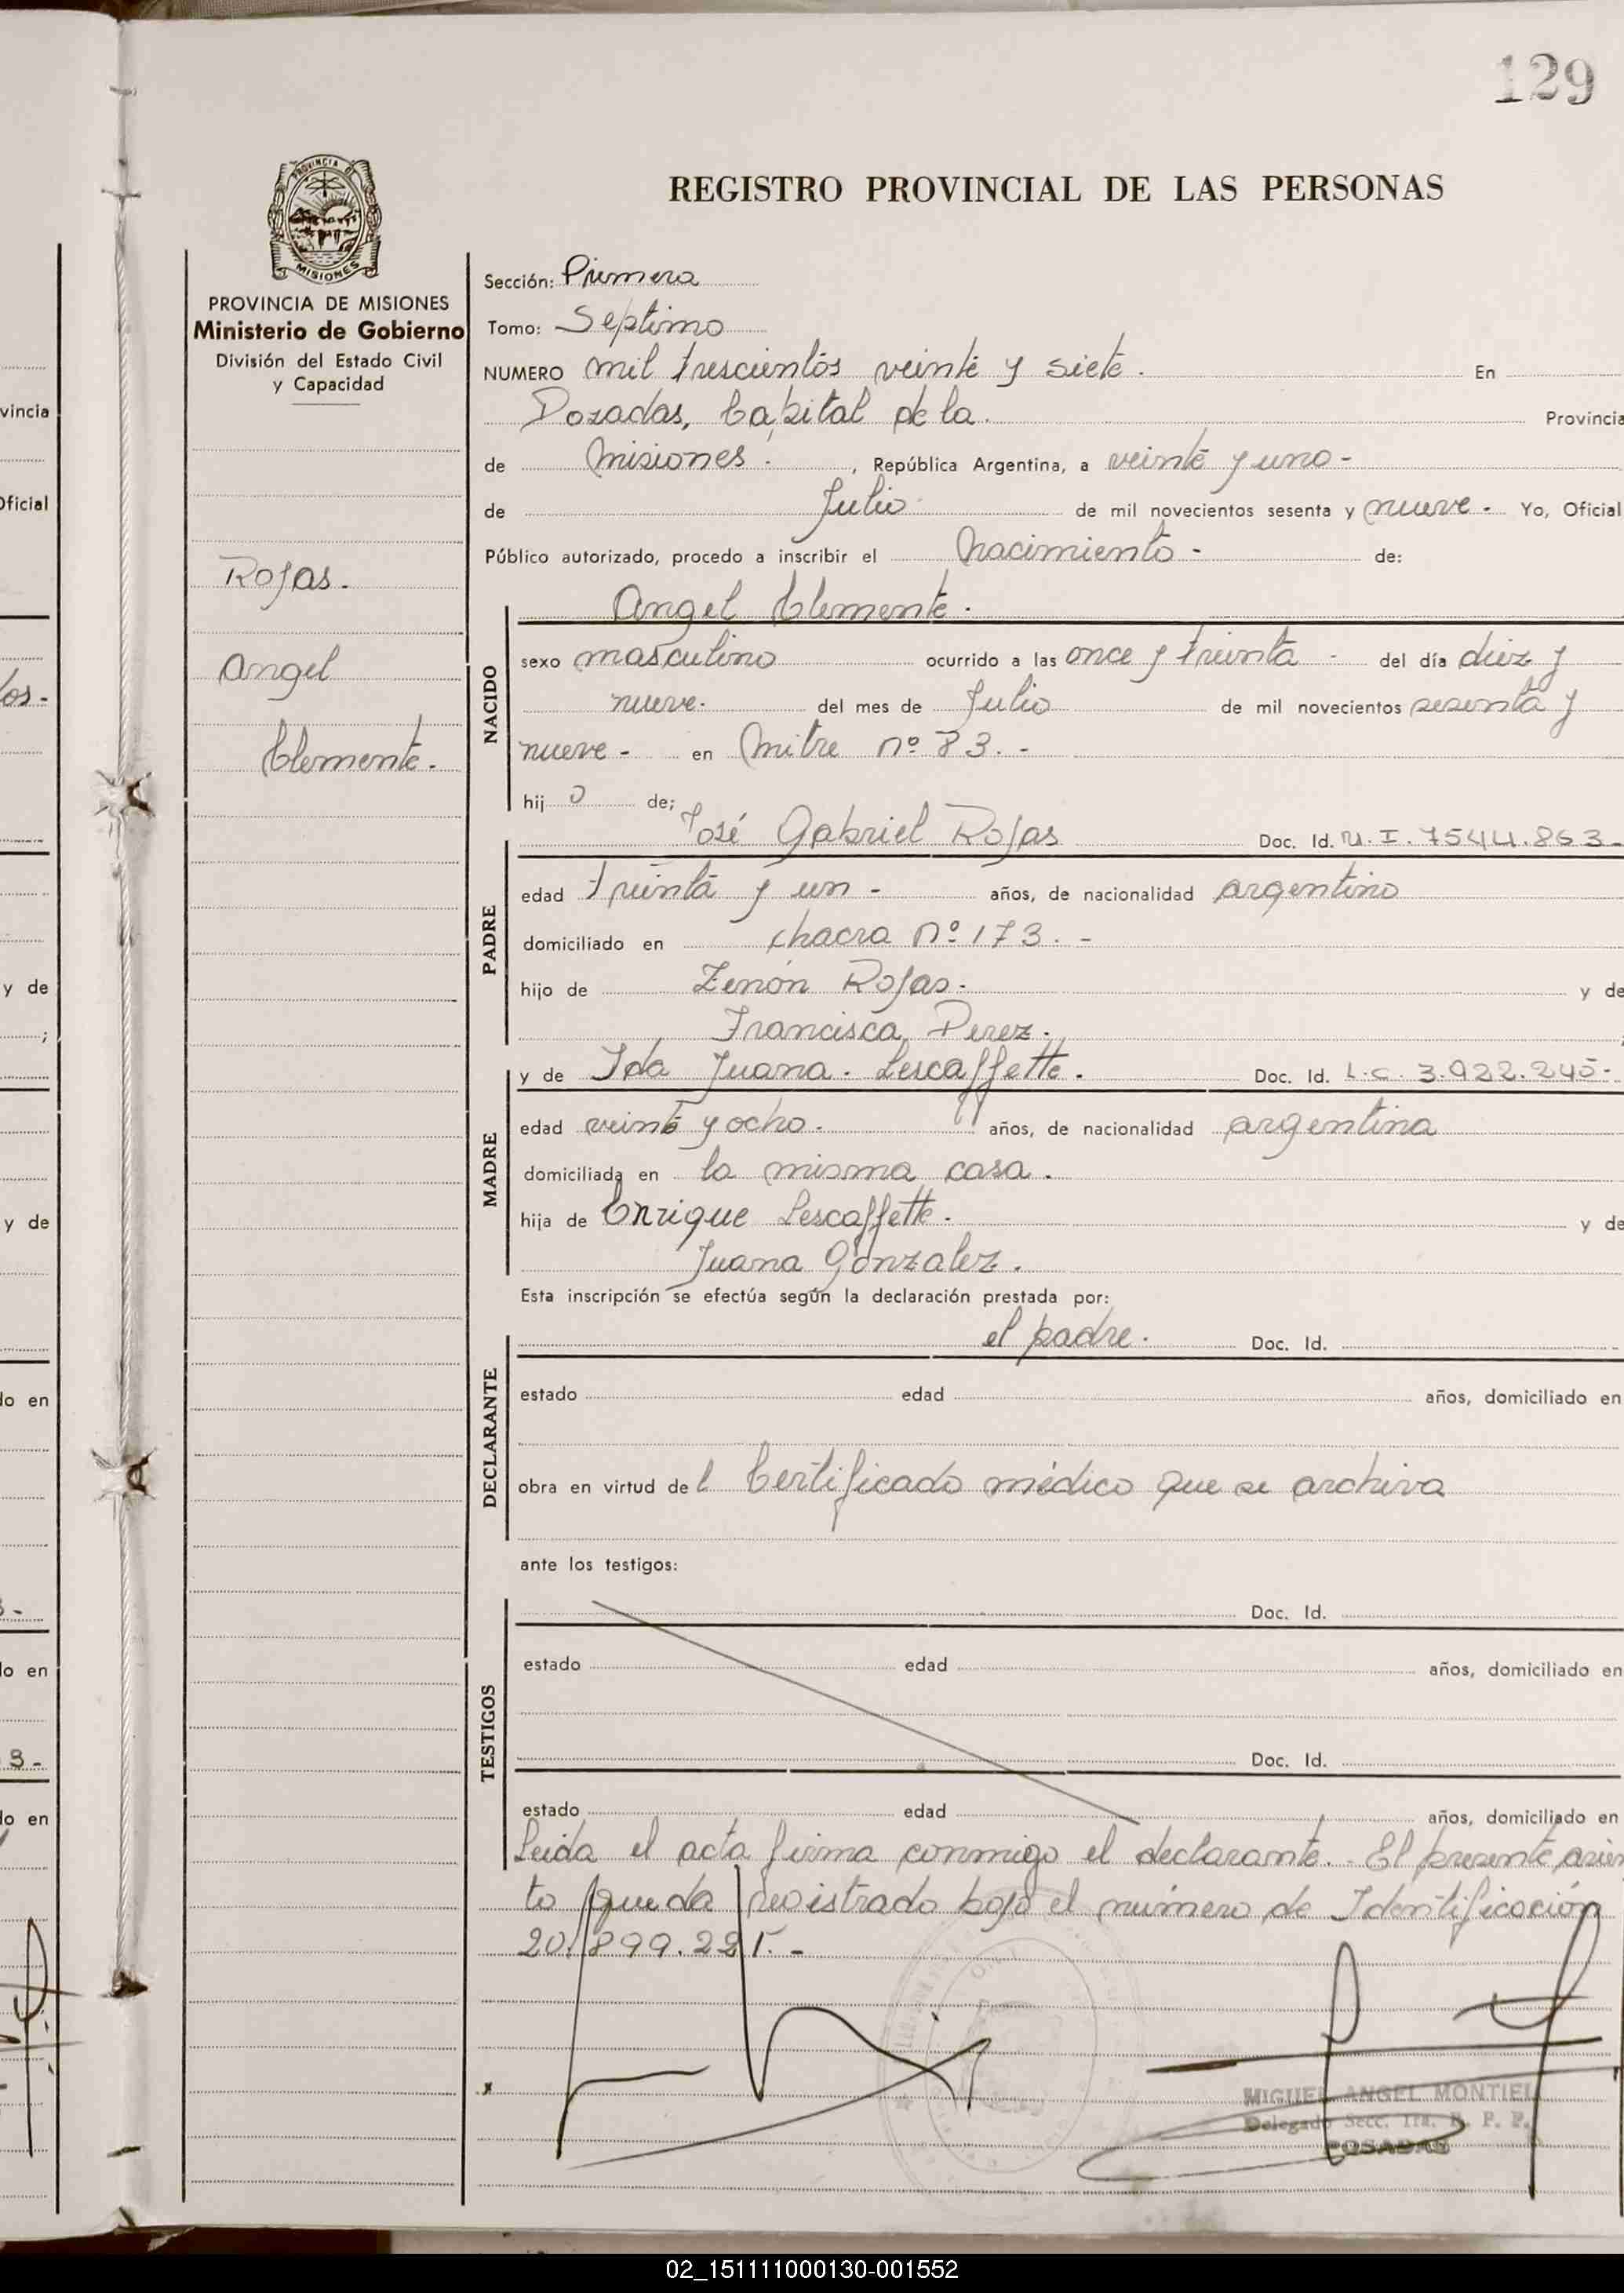 129
PROVINCIA DE
MISIONES
REGISTRO PROVINCIAL DE LAS PERSONAS
PROVINCIA DE MISIONES
Ministerio de Gobierno
División del Estado Civil
y Capacidad
Rojas.
Angel
Clemente.
Sección: Primera
Tomo: Septimo
NUMERO mil trescientos veinte y siete. En
Posadas, Capital de la. Provincia
de Misiones. , República Argentina, a veinte y uno-
de Julio de mil novecientos sesenta y nueve. Yo, Oficial
Público autorizado, procedo a inscribir el Nacimiento - de:
Angel Clemente.
NACIDO
sexo masculino ocurrido a las once y treinta - del día diez y
nueve. del mes de Julio de mil novecientos sesenta y
nueve - en Mitre nº 83. -
hij o de;
José Gabriel Rojas Doc. Id. M. I. 7544.863-
PADRE
edad treinta y un - años, de nacionalidad argentino
domiciliado en chacra nº 173. -
hijo de Zenón Rojas. y de
Francisca Perez.
y de Ida Juana. Lescaffette. Doc. Id. L.C. 3.922.245-
MADRE
edad veinte y ocho. años, de nacionalidad argentina
domiciliada en la misma casa.
hija de Enrique Lescaffette. y de
Juana Gonzalez.
Esta inscripción se efectúa según la declaración prestada por:
el padre. Doc. Id.
DECLARANTE
estado edad años, domiciliado en
obra en virtud de l Certificado médico que se archiva
ante los testigos:
Doc. Id.
TESTIGOS
estado edad años, domiciliado en
Doc. Id.
estado edad años, domiciliado en
Leida el acta firma conmigo el declarante. - El presente asien
to queda registrado bajo el número de Identificación
20.899.221. -
MIGUEL ANGEL MONTIEL
Delegado Secc. 1ra. R. P. P.
POSADAS
vincia
Oficial
los-
y de
;
y de
do en
do en
3-
do en
02_151111000130-001552